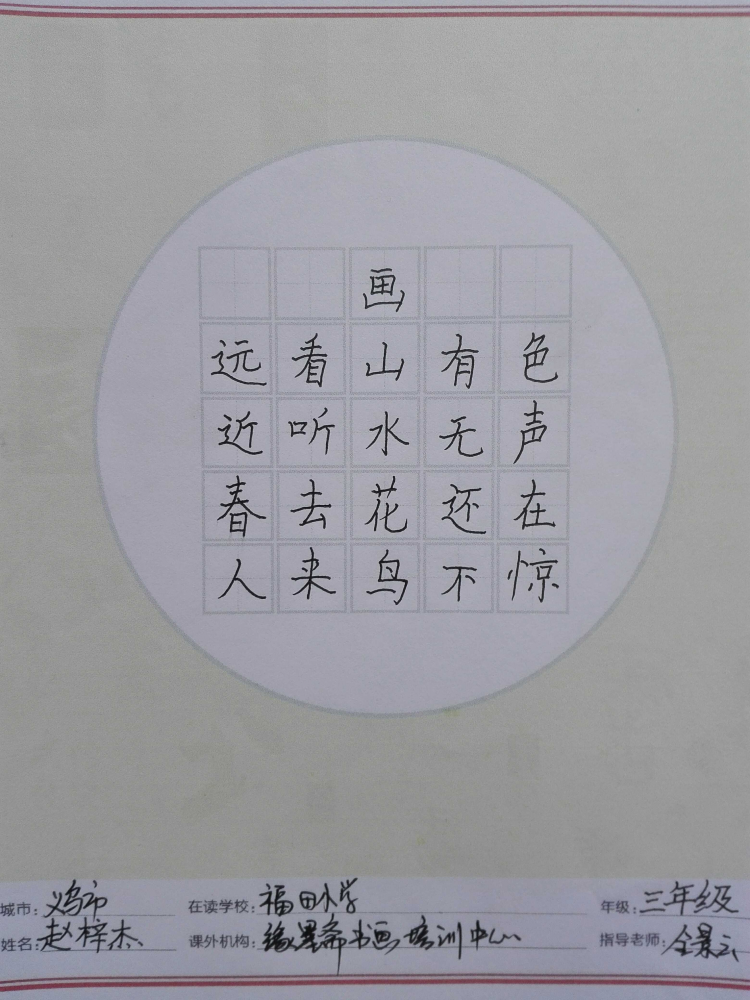 画
远看山有色
近听水无声
春去花还在
人来鸟不惊
城市: 义乌市 在读学校: 福田小学 年级: 三年级
姓名: 赵梓杰 课外机构: 缘墨斋书画培训中心 指导老师: 全景云